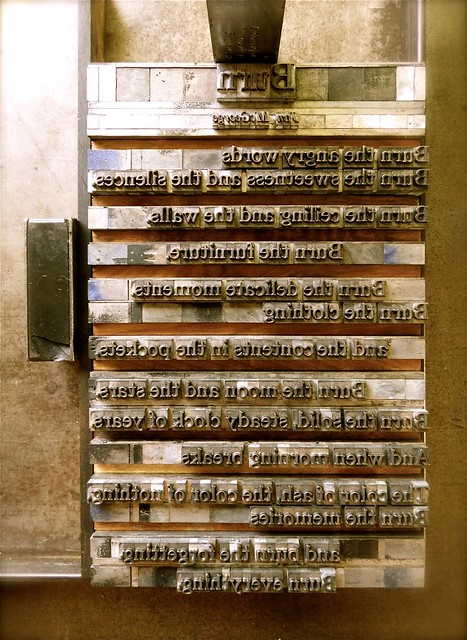 Burn
Jim McGeorge
Burn the angry words
Burn the sweetness and the silences
Burn the ceiling and the walls
Burn the furniture
Burn the delicate moments
Burn the clothing
and the contents in the pockets,
Burn the moon and the stars
Burn the solid, steady clock of years,
And when morning breaks
The color of ash, the color of nothing
Burn the memories
and burn the forgetting
Burn everything